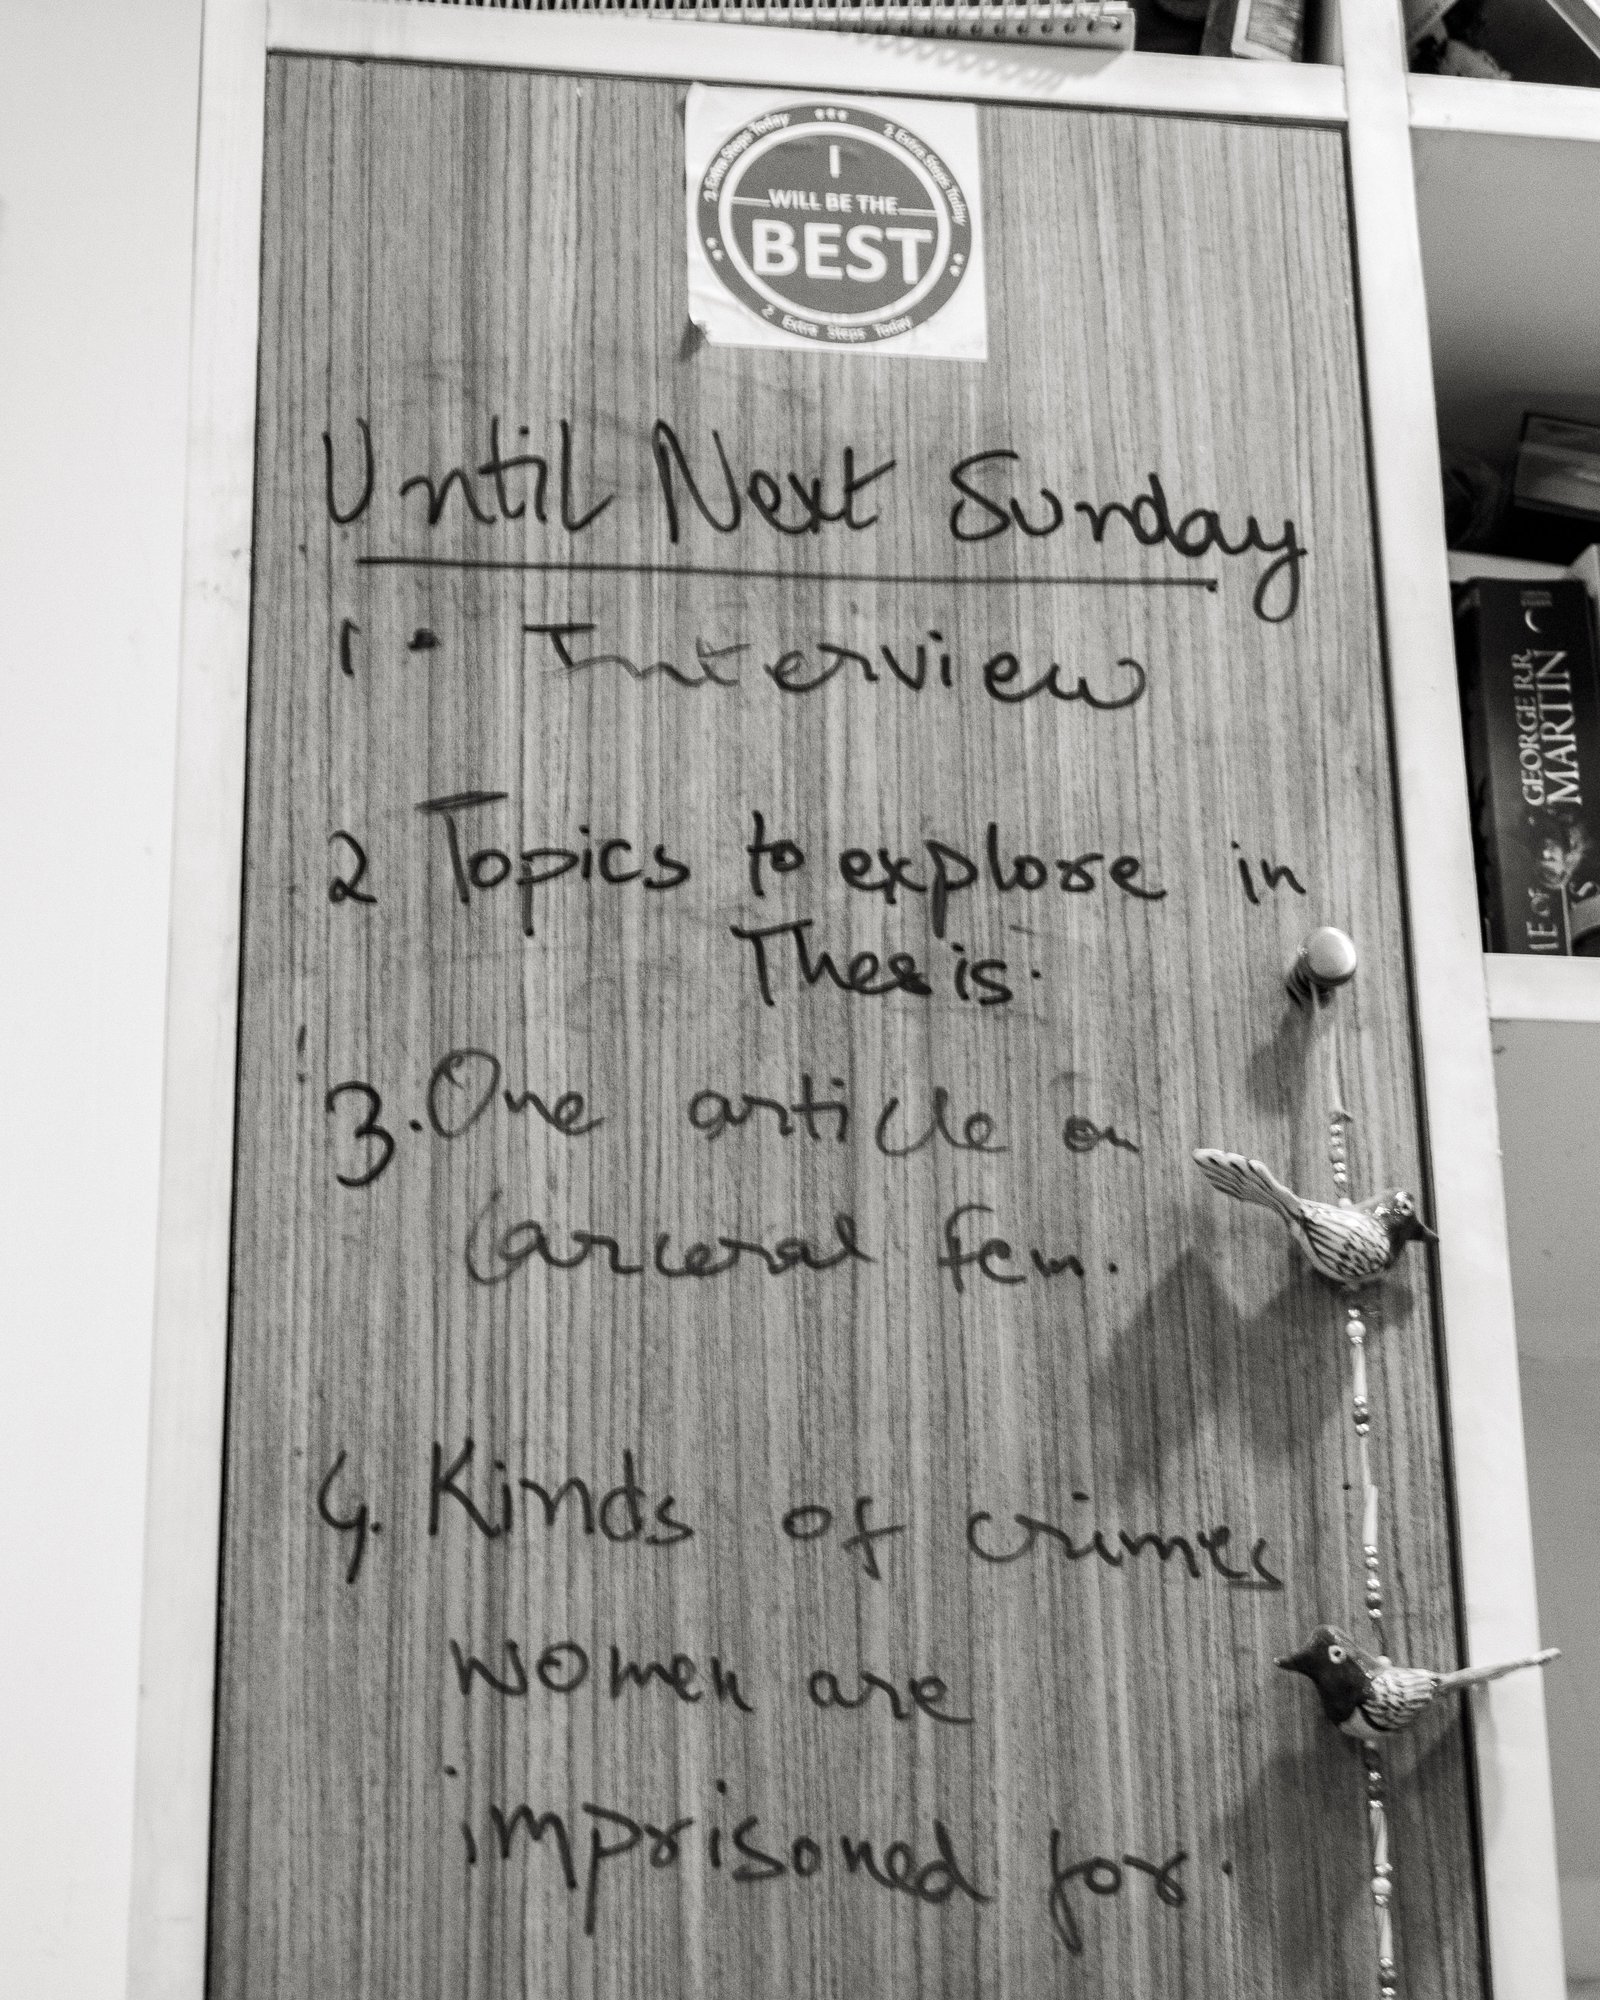 2 Extra Steps Today
2 Extra Steps Today
I
WILL BE THE
BEST
2 Extra Steps Today
Until Next Sunday
1. Interview
2 Topics to explore in
Thesis.
3. One article on
Carceral fem.
4. Kinds of crimes
women are
imprisoned for.
GEORGE R.R.
MARTIN